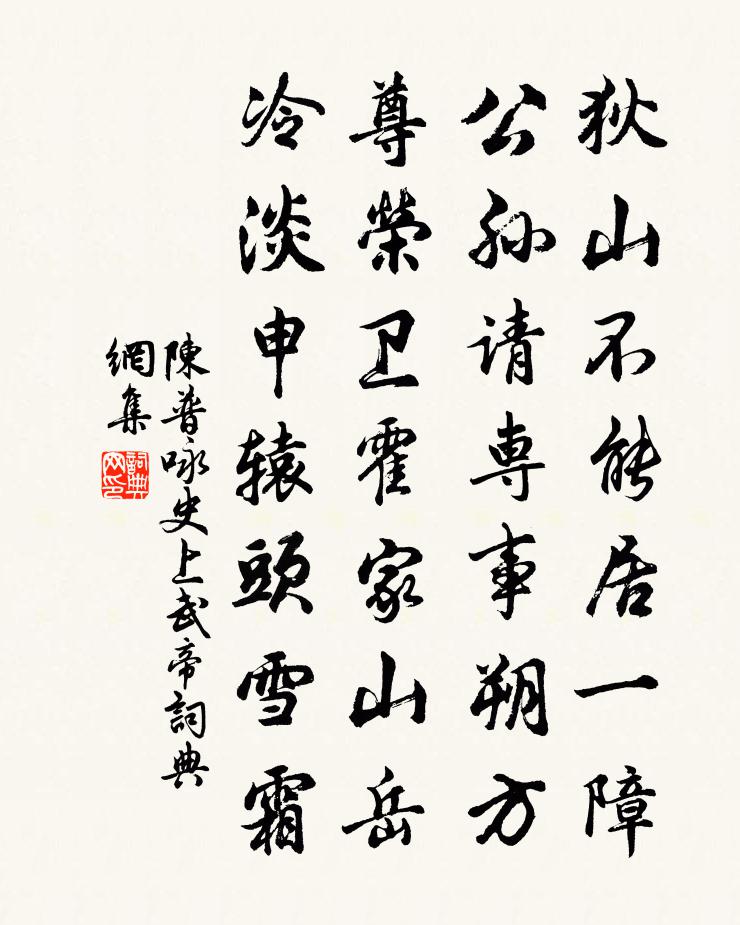 狄山不能居一障
公孙请専事朔方
尊榮卫霍家山岳
冷淡申辕頭雪霜
陳普咏史上武帝詞典
網集
詞典
网